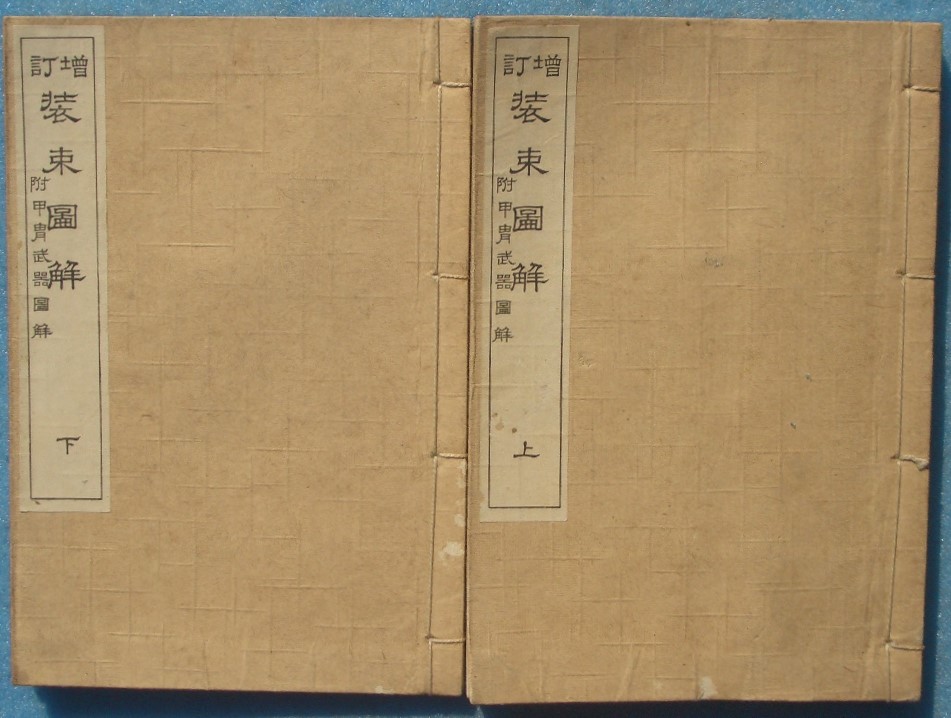 增訂
装束圖解
附甲冑武器圖解
上
增訂
装束圖解
附甲冑武器圖解
下